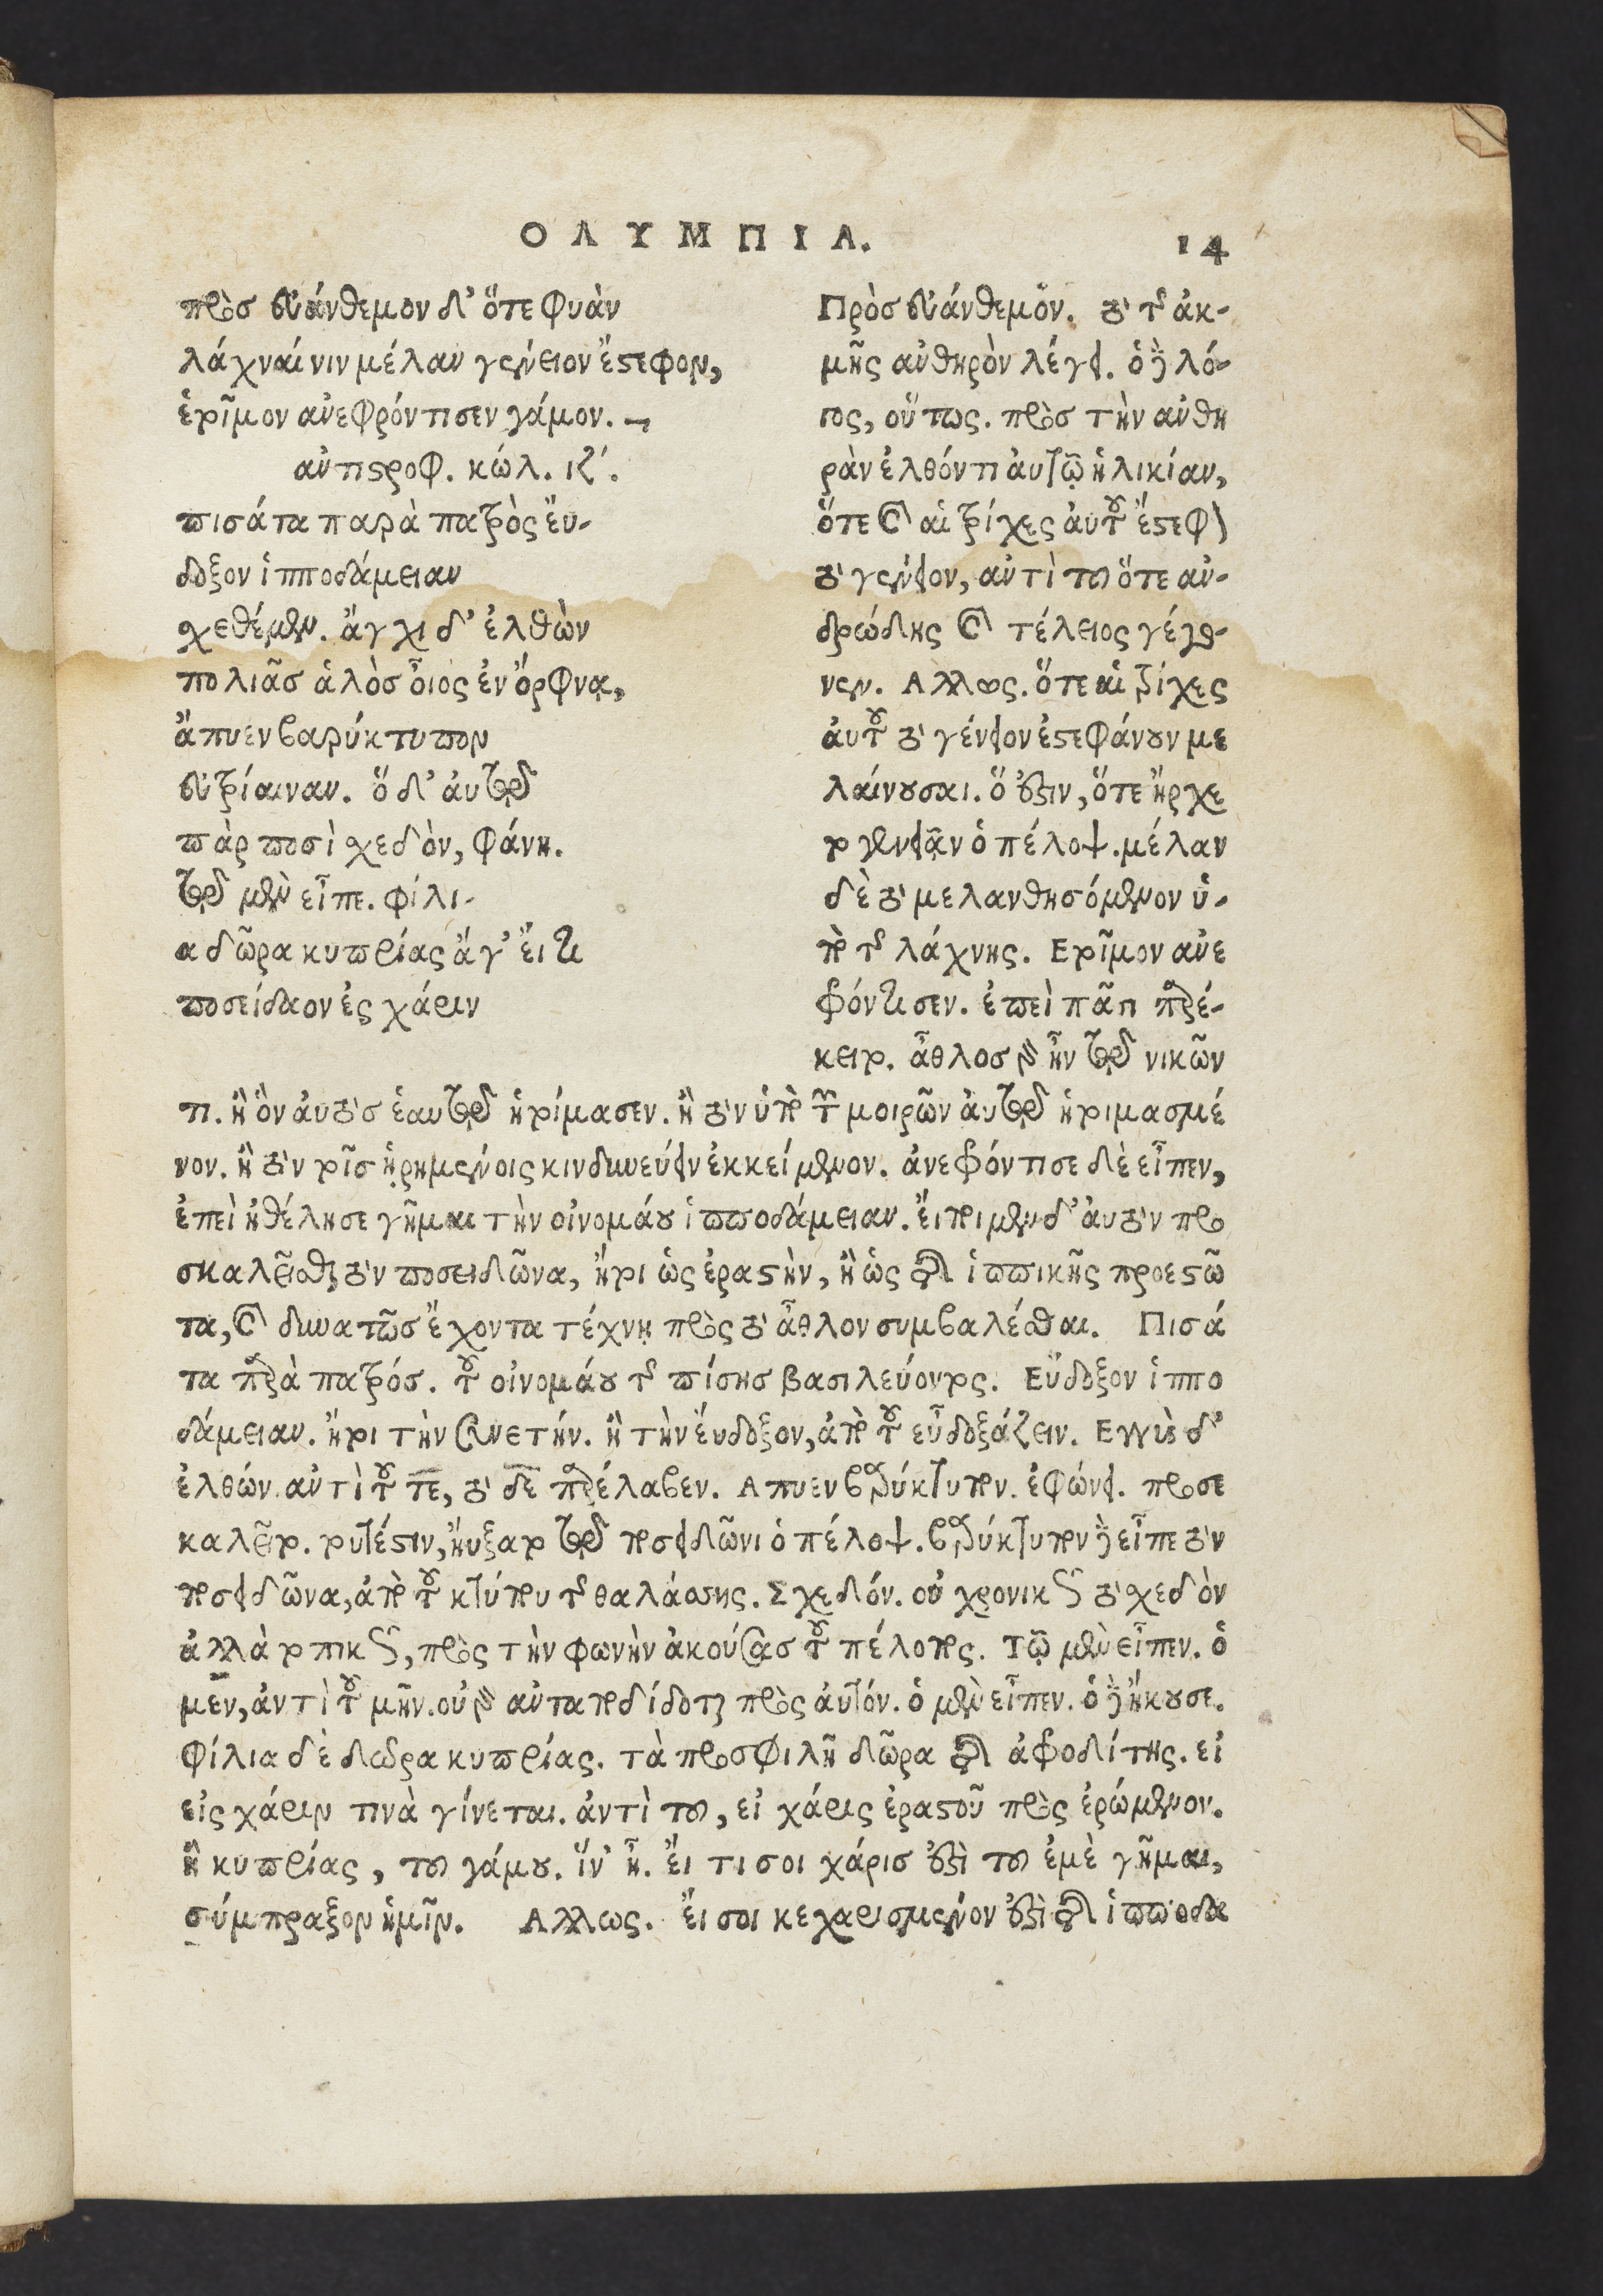 ΟΛΥΜΠΙΑ. 14
πρὸσ εὐάνθεμον δ' ὅτε φυὰν
λάχναί νιν μέλαν γένειον ἔστεφον,
ἑτοῖμον ἀνεφρόντισεν γάμον. —
ἀντιστροφ. κώλ. ιζ΄.
πισάτα παρὰ πατρὸς ἔυ-
δοξον ἱπποδάμειαν
σχεθέμεν. ἄγχι δ' ἐλθὼν
πολιᾶσ ἁλὸσ οἶος ἐν ὄρφνᾳ,
ἄπυεν βαρύκτυπον
εὐτρίαιναν. ὅ δ' ἀυτῷ
πὰρ ποσὶ σχεδὸν, φάνη.
τῷ μὲν εἶπε. φίλι-
α δῶρα κυπρίας ἄγ' ἔι τι
ποσείδαον ἐς χάριν
Πρὸσ εὐάνθεμον. τὸ τῆς ἀκ-
μῆς ἀνθηρὸν λέγει. ὁ δὲ λό-
γος, οὕτως. πρὸσ τὴν ἀνθη
ρὰν ἐλθόντι ἀυτῷ ἡλικίαν,
ὅτε καὶ αἱ τρίχες ἀυτοῦ ἔστεφον
τὸ γένειον, ἀντὶ τοῦ ὅτε ἀν-
δρώδης καὶ τέλειος γέγο-
νεν. Αλλως. ὅτε αἱ τρίχες
ἀυτοῦ τὸ γένειον ἐστεφάνουν με
λαίνουσαι. ὅ ἐστιν, ὅτε ἤρχε
το γενειᾷν ὁ πέλοψ. μέλαν
δὲ τὸ μελανθησόμενον ὑ-
πὸ τῆς λάχνης. Ετοῖμον ἀνε
φρόντισεν. ἐπεὶ πᾶσι προέ-
κειτο. ἆθλοσ γὰρ ἦν τῷ νικῶν
τι. ἢ ὃν ἀυτὸσ ἑαυτῷ ἡτοίμασεν. ἢ τὸν ὑπὸ τῶν μοιρῶν ἀυτῷ ἡτοιμασμέ
νον. ἢ τὸν τοῖσ ᾑρημένοις κινδυνεύειν ἐκκείμενον. ἀνεφρόντισε δὲ εἶπεν,
ἐπεὶ ἠθέλησε γῆμαι τὴν οἰνομάου ἱπποδάμειαν. ἕτοιμον δ' ἀυτὸν προ
σκαλεῖσθαι τὸν ποσειδῶνα, ἤτοι ὡς ἐραστὴν, ἢ ὡς τῆς ἱππικῆς προεστῶ
τα, καὶ δυνατῶσ ἔχοντα τέχνῃ πρὸς τὸ ἆθλον συμβαλέσθαι. Πισά
τα παρὰ πατρόσ. τοῦ οἰνομάου τῆς πίσησ βασιλεύοντος. Εὔδοξον ἱππο
δάμειαν. ἤτοι τὴν συνετήν. ἢ τὴν ἔυδοξον, ἀπὸ τοῦ εὖ δοξάζειν. Εγγὺς δ'
ἐλθών. ἀντὶ τοῦ τε, τὸ δε παρέλαβεν. Απυεν βαρύκτυπον. ἐφώνει. προσε
καλεῖτο. τουτέστιν, ἤυξατο τῷ ποσειδῶνι ὁ πέλοψ. βαρύκτυπον δὲ εἶπε τὸν
ποσειδῶνα, ἀπὸ τοῦ κτύπου τῆς θαλάσσης. Σχεδόν. οὐ χρονικῶς τὸ σχεδὸν
ἀλλὰ τοπικῶς, πρὸς τὴν φωνὴν ἀκούσασ τοῦ πέλοπος. Τῷ μὲν εἶπεν. ὁ
μεν, ἀντὶ τοῦ μὴν. οὐ γὰρ ἀνταποδίδοται πρὸς ἀυτόν. ὁ μὲν εἶπεν. ὁ δὲ ἤκουσε.
Φίλια δὲ δωρα κυπρίας. τὰ προσφιλῆ δῶρα τῆς ἀφροδίτης. εἰ
εἰς χάριν τινὰ γίνεται. ἀντὶ τοῦ, εἰ χάρις ἐραστοῦ πρὸς ἐρώμενον.
ἢ κυπρίας, τοῦ γάμου. ἵν' ᾖ. ἔι τι σοι χάρισ ἐπὶ τοῦ ἐμὲ γῆμαι,
σύμπραξον ἡμῖν. Αλλως. ἔι σοι κεχαρισμένον ἐπὶ τῆς ἱπποδα